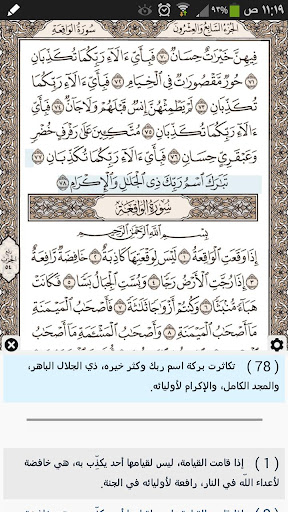 ١١:١٩ ص
سورة الواقعة
الجزء السابع والعشرون
فِيهِنَّ خَيْرَاتٌ حِسَانٌ ٧٠ فَبِأَيِّ آلَاءِ رَبِّكُمَا تُكَذِّبَانِ
٧١ حُورٌ مَقْصُورَاتٌ فِي الْخِيَامِ ٧٢ فَبِأَيِّ آلَاءِ رَبِّكُمَا
تُكَذِّبَانِ ٧٣ لَمْ يَطْمِثْهُنَّ إِنْسٌ قَبْلَهُمْ وَلَا جَانٌّ ٧٤
فَبِأَيِّ آلَاءِ رَبِّكُمَا تُكَذِّبَانِ ٧٥ مُتَّكِئِينَ عَلَى رَفْرَفٍ خُضْرٍ
وَعَبْقَرِيٍّ حِسَانٍ ٧٦ فَبِأَيِّ آلَاءِ رَبِّكُمَا تُكَذِّبَانِ ٧٧
تَبَارَكَ اسْمُ رَبِّكَ ذِي الْجَلَالِ وَالْإِكْرَامِ ٧٨
سورة الواقعة
بِسْمِ اللَّهِ الرَّحْمَنِ الرَّحِيمِ
إِذَا وَقَعَتِ الْوَاقِعَةُ ١ لَيْسَ لِوَقْعَتِهَا كَاذِبَةٌ ٢ خَافِضَةٌ رَافِعَةٌ
٣ إِذَا رُجَّتِ الْأَرْضُ رَجًّا ٤ وَبُسَّتِ الْجِبَالُ بَسًّا ٥ فَكَانَتْ
هَبَاءً مُنْبَثًّا ٦ وَكُنْتُمْ أَزْوَاجًا ثَلَاثَةً ٧ فَأَصْحَابُ الْمَيْمَنَةِ
مَا أَصْحَابُ الْمَيْمَنَةِ ٨ وَأَصْحَابُ الْمَشْأَمَةِ مَا أَصْحَابُ
(78) تكاثرت بركة اسم ربك وكثر خيره، ذي الجلال الباهر،
والمجد الكامل، والإكرام لأوليائه.
(1) إذا قامت القيامة، ليس لقيامها أحد يكذّب به، هي خافضة
لأعداء اللّه في النار، رافعة لأوليائه في الجنة.